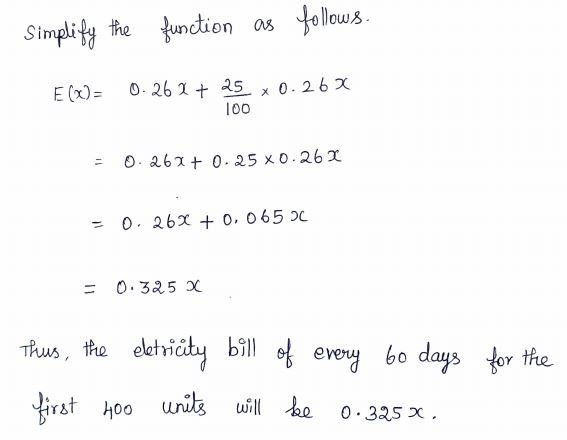 Simplify the function as follows.
E(x) = 0.26x + 25/100 × 0.26x
= 0.26x + 0.25 × 0.26x
= 0.26x + 0.065x
= 0.325x
Thus, the eletricity bill of every 60 days for the
first 400 units will be 0.325x.